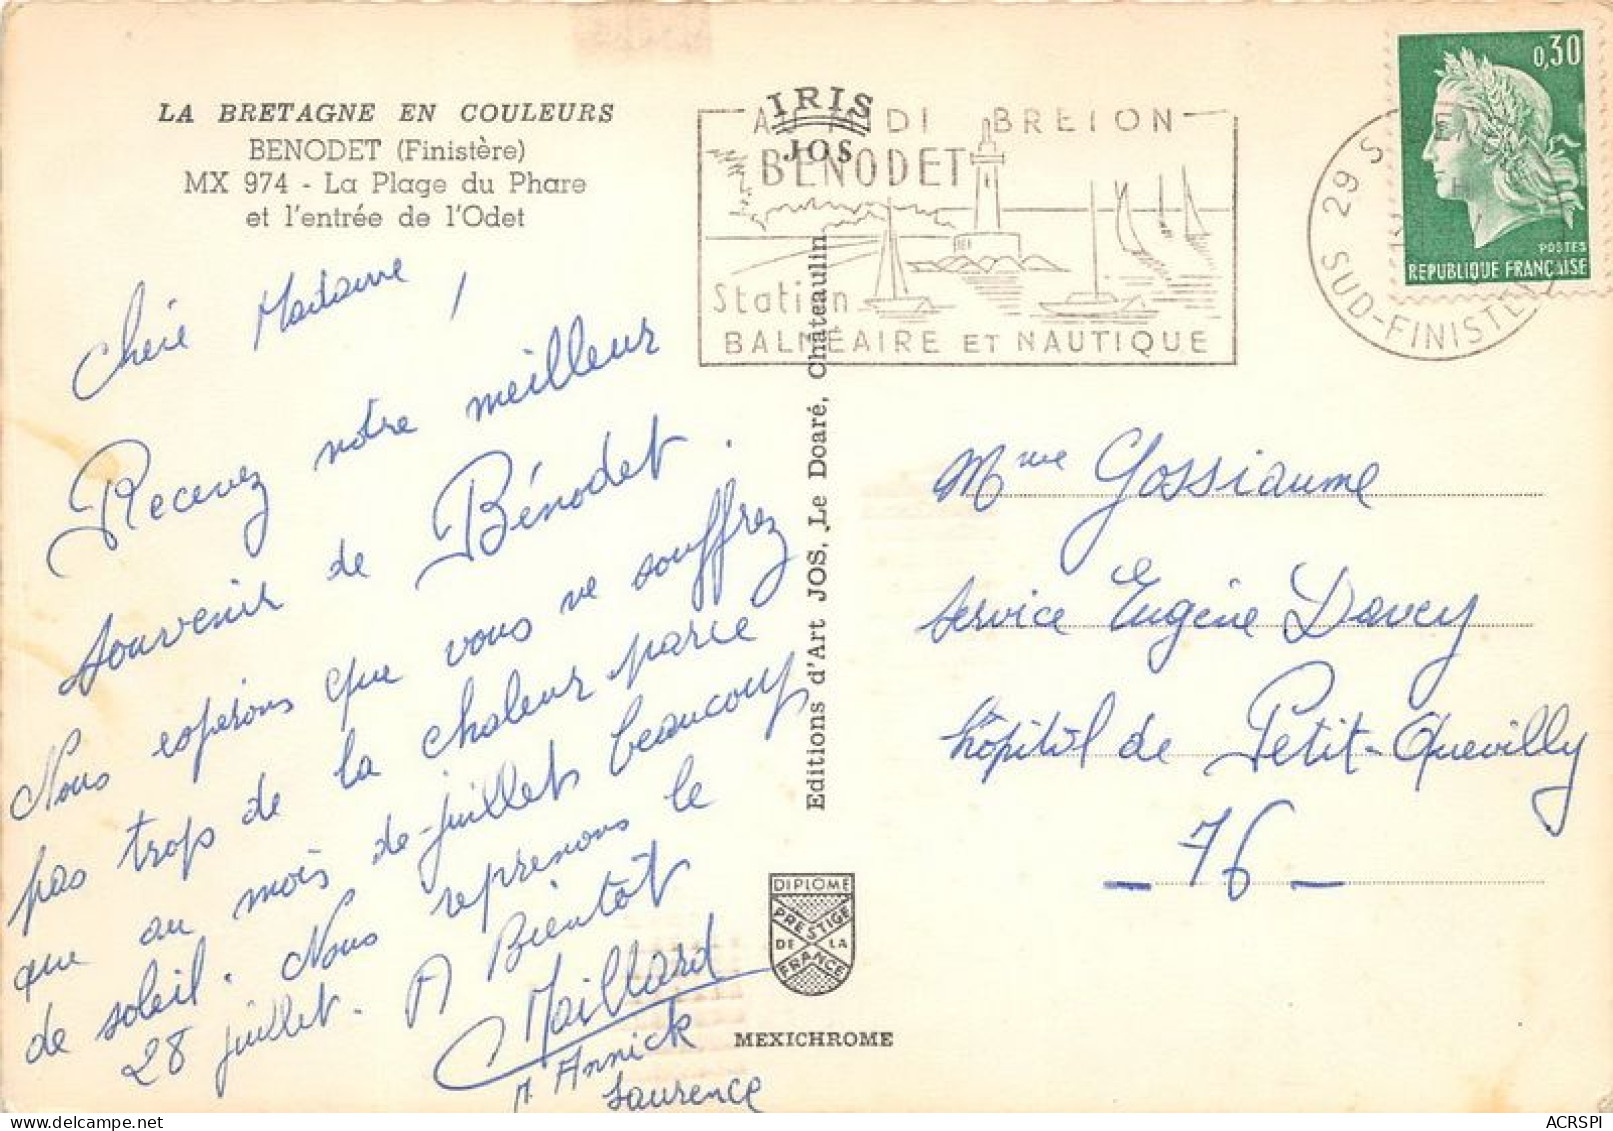 LA BRETAGNE EN COULEURS
BENODET (Finistère)
MX 974 - La Plage du Phare
et l'entrée de l'Odet
Chère Madame,
Recevez notre meilleur
souvenir de Bénodet.
Nous espérons que vous ne souffrez
pas trop de la chaleur parce
que au mois de-juillet beaucoup
de soleil. Nous reprenons le
28 juillet. A Bientôt
Maillard
Annick
Laurence
IRIS
JOS
Editions d'Art JOS, Le Doaré, Châteaulin
DIPLOME
PRESTIGE
DE LA
FRANCE
MEXICHROME
AU MIDI BRETON
BENODET
Station
BALNEAIRE ET NAUTIQUE
29 S
SUD-FINISTE
0,30
POSTES
REPUBLIQUE FRANÇAISE
Mme Gossiaume
service Eugène Davey
hôpital de Petit-Quevilly
- 76 -
ACRSPI